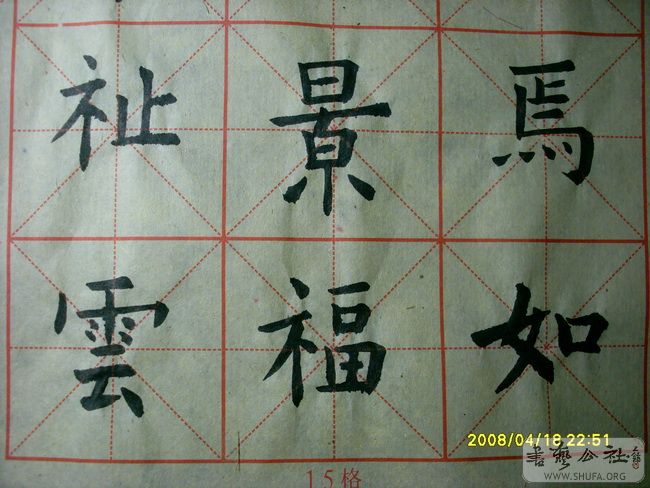 焉如
景福
祉雲
15格
2008/04/18 22:51
書藝公社
WWW.SHUFA.ORG